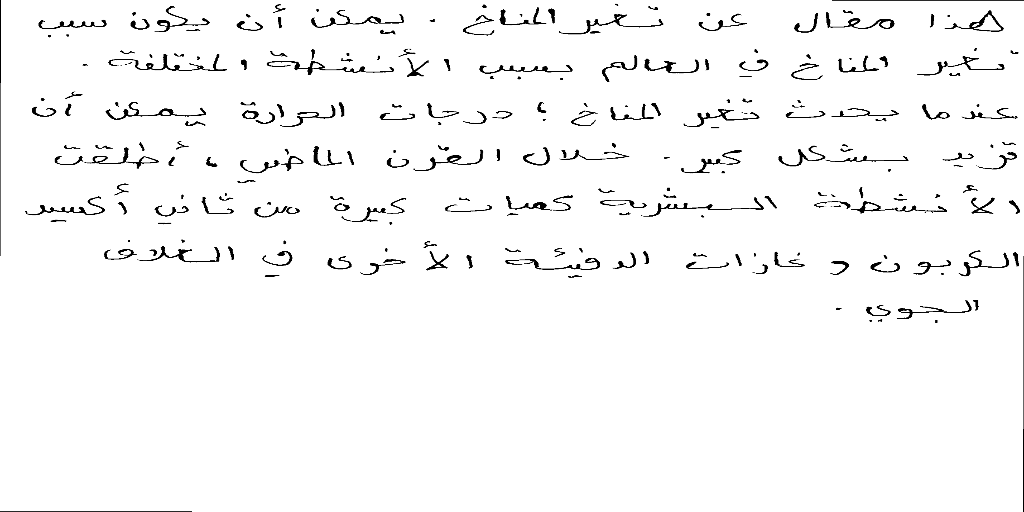 هذا مقال عن تغير المناخ . يمكن أن يكون سبب
تغير المناخ في العالم بسبب الأنشطة المختلفة .
عندما يحدث تغير المناخ ؛ درجات الحرارة يمكن أن
تزيد بشكل كبير . خلال القرن الماضي ، أطلقت
الأنشطة البشرية كميات كبيرة من ثاني أكسيد
الكربون و غازات الدفيئة الأخرى في الغلاف
الجوي .